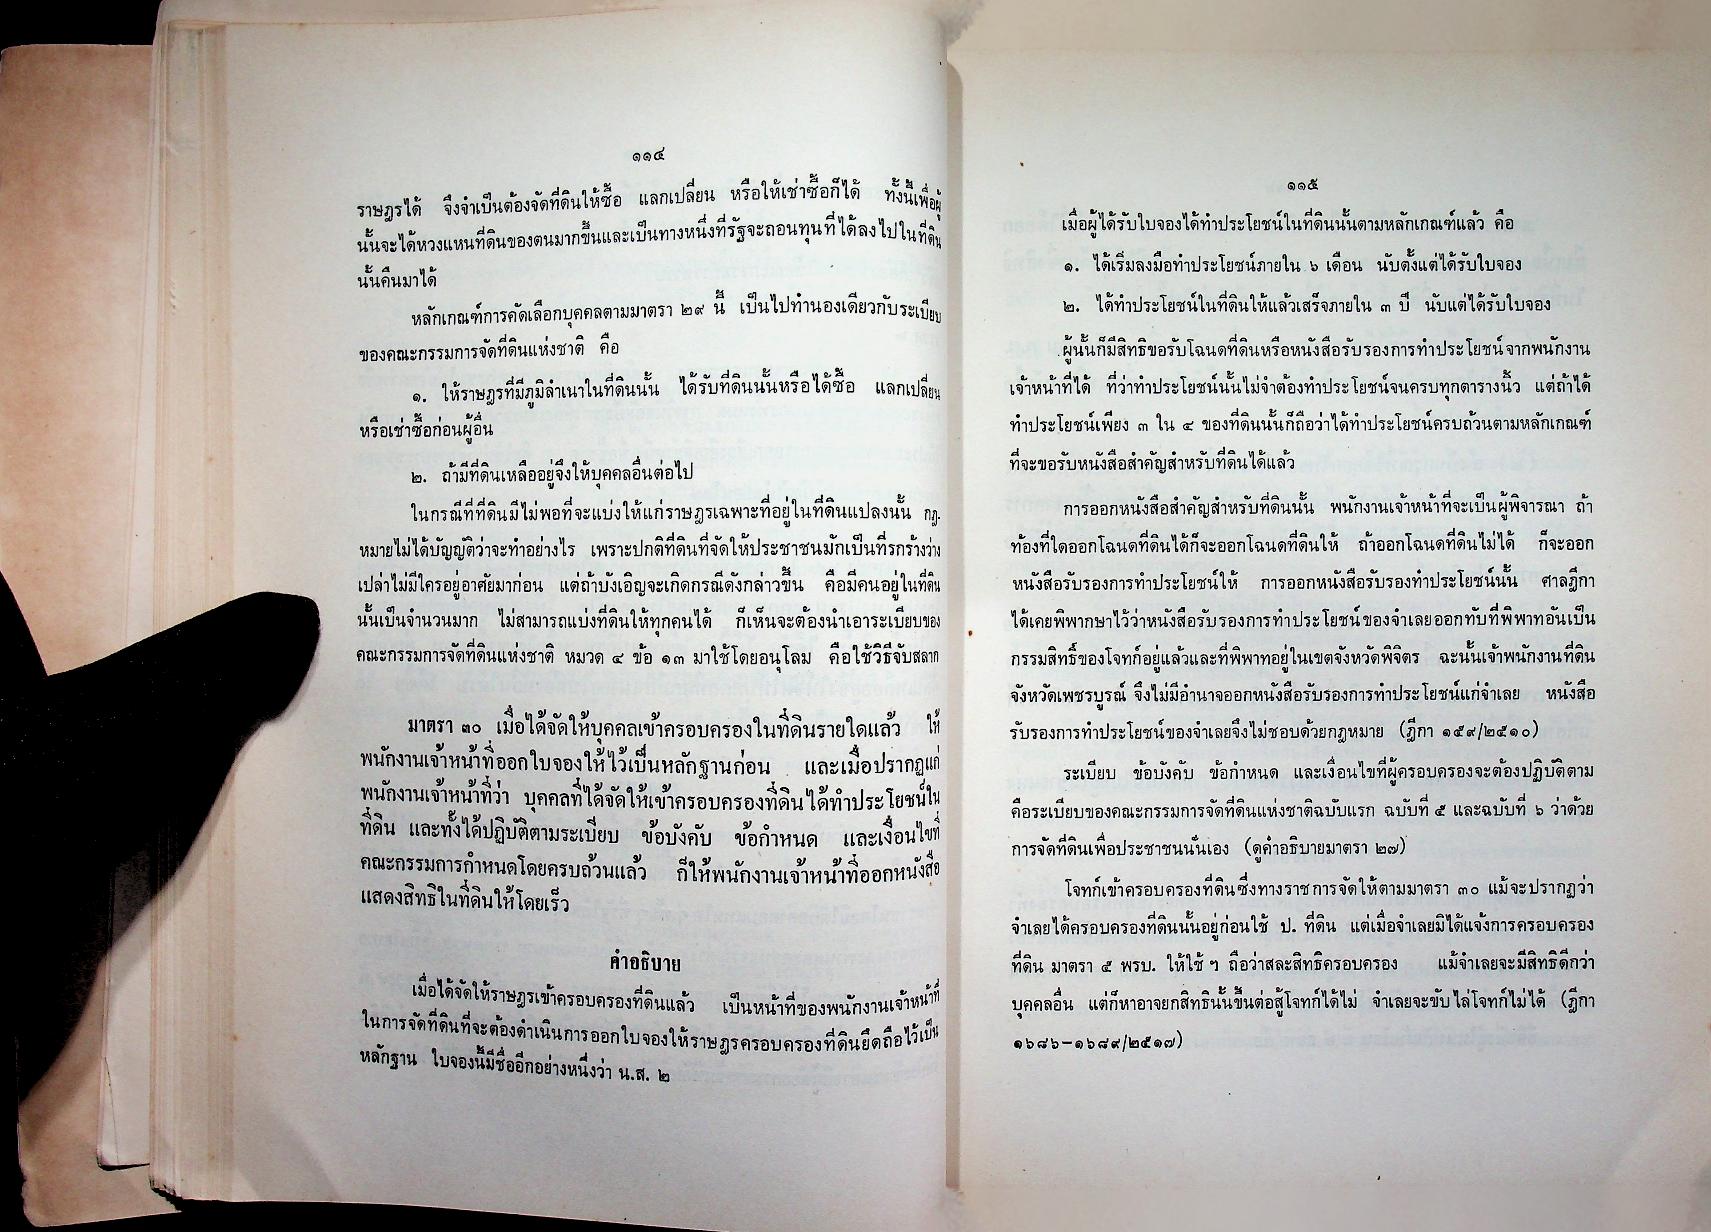 ๑๑๔
ราษฎรได้ จึงจำเป็นต้องจัดที่ดินให้ซื้อ แลกเปลี่ยน หรือให้เช่าซื้อก็ได้ ทั้งนี้เพื่อผู้
นั้นจะได้หวงแหนที่ดินของตนมากขึ้นและเป็นทางหนึ่งที่รัฐจะถอนทุนที่ได้ลงไปในที่ดิน
นั้นคืนมาได้
หลักเกณฑ์การคัดเลือกบุคคลตามมาตรา ๒๙ นี้ เป็นไปทำนองเดียวกับระเบียบ
ของคณะกรรมการจัดที่ดินแห่งชาติ คือ
๑. ให้ราษฎรที่มีภูมิลำเนาในที่ดินนั้น ได้รับที่ดินนั้นหรือได้ซื้อ แลกเปลี่ยน
หรือเช่าซื้อก่อนผู้อื่น
๒. ถ้ามีที่ดินเหลืออยู่จึงให้บุคคลอื่นต่อไป
ในกรณีที่ที่ดินมีไม่พอที่จะแบ่งให้แก่ราษฎรเฉพาะที่อยู่ในที่ดินแปลงนั้น กฎ.
หมายไม่ได้บัญญัติว่าจะทำอย่างไร เพราะปกติที่ดินที่จัดให้ประชาชนมักเป็นที่รกร้างว่าง
เปล่าไม่มีใครอยู่อาศัยมาก่อน แต่ถ้าบังเอิญจะเกิดกรณีดังกล่าวขึ้น คือมีคนอยู่ในที่ดิน
นั้นเป็นจำนวนมาก ไม่สามารถแบ่งที่ดินให้ทุกคนได้ ก็เห็นจะต้องนำเอาระเบียบของ
คณะกรรมการจัดที่ดินแห่งชาติ หมวด ๔ ข้อ ๑๓ มาใช้โดยอนุโลม คือใช้วิธีจับสลาก
มาตรา ๓๐ เมื่อได้จัดให้บุคคลเข้าครอบครองในที่ดินรายใดแล้ว ให้
พนักงานเจ้าหน้าที่ออกใบจองให้ไว้เป็นหลักฐานก่อน และเมื่อปรากฏแก่
พนักงานเจ้าหน้าที่ว่า บุคคลที่ได้จัดให้เข้าครอบครองที่ดินได้ทำประโยชน์ใน
ที่ดิน และทั้งได้ปฏิบัติตามระเบียบ ข้อบังคับ ข้อกำหนด และเงื่อนไขที่
คณะกรรมการกำหนดโดยครบถ้วนแล้ว ก็ให้พนักงานเจ้าหน้าที่ออกหนังสือ
แสดงสิทธิในที่ดินให้โดยเร็ว
คำอธิบาย
เมื่อได้จัดให้ราษฎรเข้าครอบครองที่ดินแล้ว เป็นหน้าที่ของพนักงานเจ้าหน้าที่
ในการจัดที่ดินที่จะต้องดำเนินการออกใบจองให้ราษฎรครอบครองที่ดินยึดถือไว้เป็น
หลักฐาน ใบจองนี้มีชื่ออีกอย่างหนึ่งว่า น.ส. ๒
๑๑๕
เมื่อผู้ได้รับใบจองได้ทำประโยชน์ในที่ดินนั้นตามหลักเกณฑ์แล้ว คือ
๑. ได้เริ่มลงมือทำประโยชน์ภายใน ๖ เดือน นับตั้งแต่ได้รับใบจอง
๒. ได้ทำประโยชน์ในที่ดินให้แล้วเสร็จภายใน ๓ ปี นับแต่ได้รับใบจอง
ผู้นั้นก็มีสิทธิขอรับโฉนดที่ดินหรือหนังสือรับรองการทำประโยชน์จากพนักงาน
เจ้าหน้าที่ได้ ที่ว่าทำประโยชน์นั้นไม่จำต้องทำประโยชน์จนครบทุกตารางนิ้ว แต่ถ้าได้
ทำประโยชน์เพียง ๓ ใน ๔ ของที่ดินนั้นก็ถือว่าได้ทำประโยชน์ครบถ้วนตามหลักเกณฑ์
ที่จะขอรับหนังสือสำคัญสำหรับที่ดินได้แล้ว
การออกหนังสือสำคัญสำหรับที่ดินนั้น พนักงานเจ้าหน้าที่จะเป็นผู้พิจารณา ถ้า
ท้องที่ใดออกโฉนดที่ดินได้ก็จะออกโฉนดที่ดินให้ ถ้าออกโฉนดที่ดินไม่ได้ ก็จะออก
หนังสือรับรองการทำประโยชน์ให้ การออกหนังสือรับรองทำประโยชน์นั้น ศาลฎีกา
ได้เคยพิพากษาไว้ว่าหนังสือรับรองการทำประโยชน์ของจำเลยออกทับที่พิพาทอันเป็น
กรรมสิทธิ์ของโจทก์อยู่แล้วและที่พิพาทอยู่ในเขตจังหวัดพิจิตร ฉะนั้นเจ้าพนักงานที่ดิน
จังหวัดเพชรบูรณ์ จึงไม่มีอำนาจออกหนังสือรับรองการทำประโยชน์แก่จำเลย หนังสือ
รับรองการทำประโยชน์ของจำเลยจึงไม่ชอบด้วยกฎหมาย (ฎีกา ๑๕๙/๒๕๑๐)
ระเบียบ ข้อบังคับ ข้อกำหนด และเงื่อนไขที่ผู้ครอบครองจะต้องปฏิบัติตาม
คือระเบียบของคณะกรรมการจัดที่ดินแห่งชาติฉบับแรก ฉบับที่ ๕ และฉบับที่ ๖ ว่าด้วย
การจัดที่ดินเพื่อประชาชนนั่นเอง (ดูคำอธิบายมาตรา ๒๗)
โจทก์เข้าครอบครองที่ดินซึ่งทางราชการจัดให้ตามมาตรา ๓๐ แม้จะปรากฏว่า
จำเลยได้ครอบครองที่ดินนั้นอยู่ก่อนใช้ ป. ที่ดิน แต่เมื่อจำเลยมิได้แจ้งการครอบครอง
ที่ดิน มาตรา ๕ พรบ. ให้ใช้ ฯ ถือว่าสละสิทธิครอบครอง แม้จำเลยจะมีสิทธิดีกว่า
บุคคลอื่น แต่ก็หาอาจยกสิทธินั้นขึ้นต่อสู้โจทก์ได้ไม่ จำเลยจะขับไล่โจทก์ไม่ได้ (ฎีกา
๑๖๘๖-๑๖๘๙/๒๕๑๗)